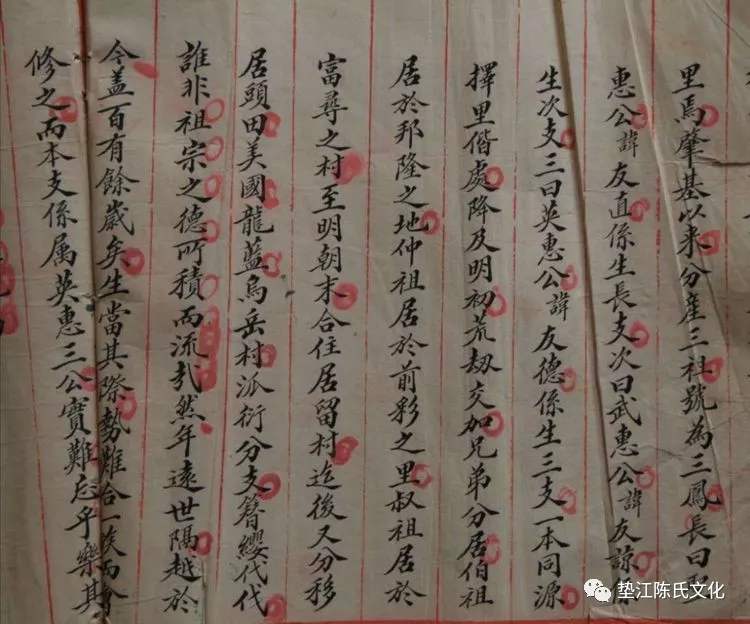 里焉肇基以来分産三祖號為三鳳長曰
惠公諱友直係生長支次曰武惠公諱友諒
生次支三曰英惠公諱友德係生三支一本同源
擇里偕處降及明初荒劫交加兄弟分居伯祖
居於邦隆之地仲祖居於前彩之里叔祖居於
富尋之村至明朝末合住居留村迄後又分移
居頭田美國龍藍烏岳村派衍分支簪纓代代
誰非祖宗之德所積而流哉然年遠世隔越於
今盖百有餘歲矣生當其際勢難合一族而會
修之而本支係属英惠三公實難忘乎樂其
垫江陈氏文化